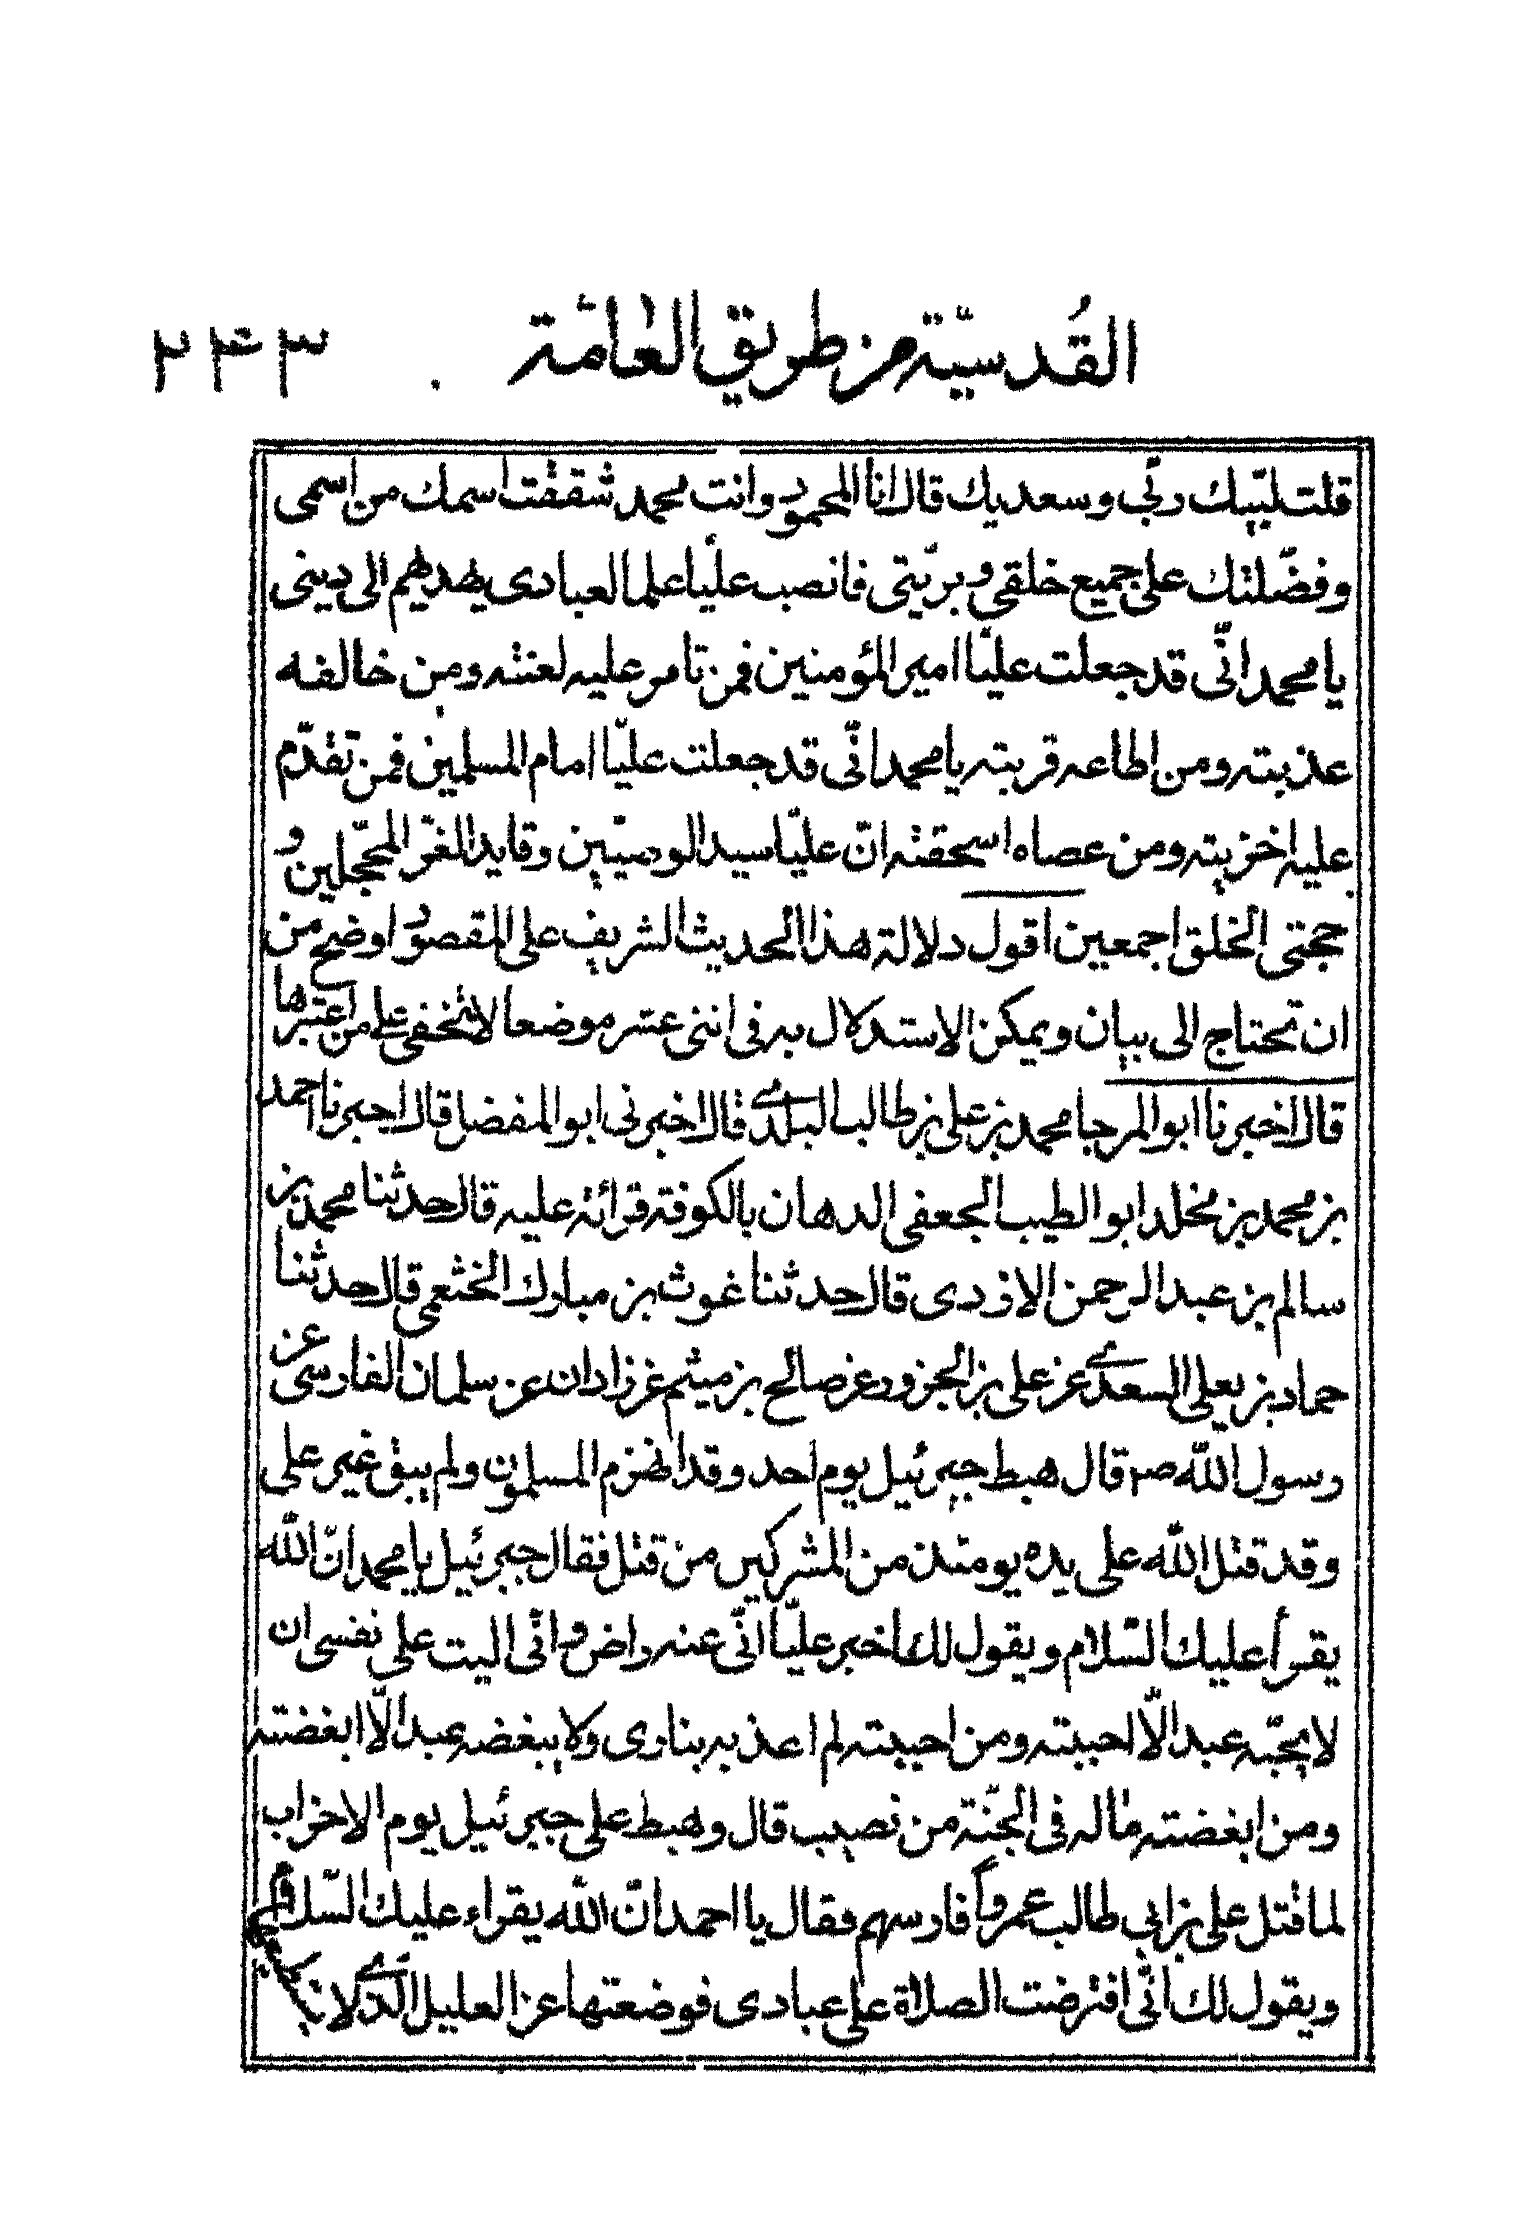 القُدسيّة من طريق العامّة ٢٤٣
قلت لبّيك ربّي وسعديك قال انا المحمود وانت محمد شققت اسمك من اسمى
وفضّلتك على جميع خلقى وبريّتى فانصب عليّا علما لعبادى يهديهم الى دينى
يا محمد انّى قد جعلت عليّا امير المؤمنين فمن تأمر عليه لعنته ومن خالفه
عذبته ومن اطاعه قربته يا محمد انّى قد جعلت عليّا امام المسلمين فمن تقدّم
عليه اخزيته ومن عصاه اسحقته انّ عليّا سيد الوصيّين وقايد الغرّ المحجّلين و
حجتى الخلق اجمعين اقول دلالة هذا الحديث الشريف على المقصود اوضح من
ان تحتاج الى بيان ويمكن الاستدلال به فى اثنى عشر موضعا لا تخفى على من اعتبرها
قال اخبرنا ابو المرجا محمد بن على بن طالب البلدى قال اخبرنى ابو المفضل قال احبرنا احمد
بن محمد بن مخلد ابو الطيب الجعفى الدهان بالكوفة قرائة عليه قال حدثنا محمد بن
سالم بن عبد الرحمن الازدى قال حدثنا غوث بن مبارك الخثعمى قال حدثنا
حماد بن يعلى السعدى عن على بن الحزور عن صالح بن ميثم عن زادان عن سلمان الفارسى عن
رسول الله ص قال هبط جبرئيل يوم احد وقد انهزم المسلمون ولم يبق غير على
وقد قتل الله على يده يومئذ من المشركين من قتل فقال جبرئيل يا محمد انّ الله
يقرأ عليك السّلام ويقول لك اخبر عليّا انّى عنه راض وانّى اليت على نفسى ان
لا يحبّه عبد الّا احببته ومن احببته لم اعذبه بنارى ولا يبغضه عبد الّا ابغضته
ومن ابغضته ماله فى الجنّة من نصيب قال وهبط على جبرئيل يوم الاحزاب
لما قتل على بن ابي طالب عمروا فارسهم فقال يا احمد انّ الله يقراء عليك السّلام
ويقول لك انّى افترضت الصلاة على عبادى فوضعتها عن العليل الذى لا